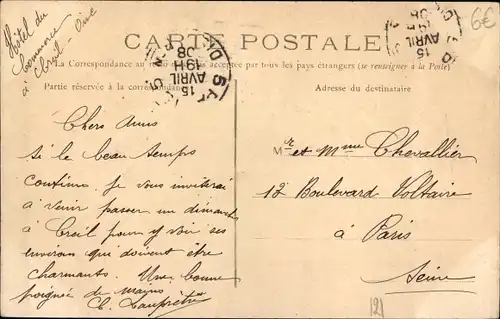 Hôtel du
Commerce
à Creil - Oise
6€
CARTE POSTALE
La Correspondance au
acceptée par tous les pays étrangers (se renseigner à la Poste)
Partie réservée à la correspondance
Adresse du destinataire
15
AVRIL
19H
08
15
AVRIL
08
Chers Amis
Si le beau temps
continue, je vous inviterai
à venir passer un dimanche
à Creil pour y voir ses
environs qui doivent être
charmants. Une bonne
poignée de mains
Mr et Mme Chevallier
12 Boulevard Voltaire
à Paris
Seine
121